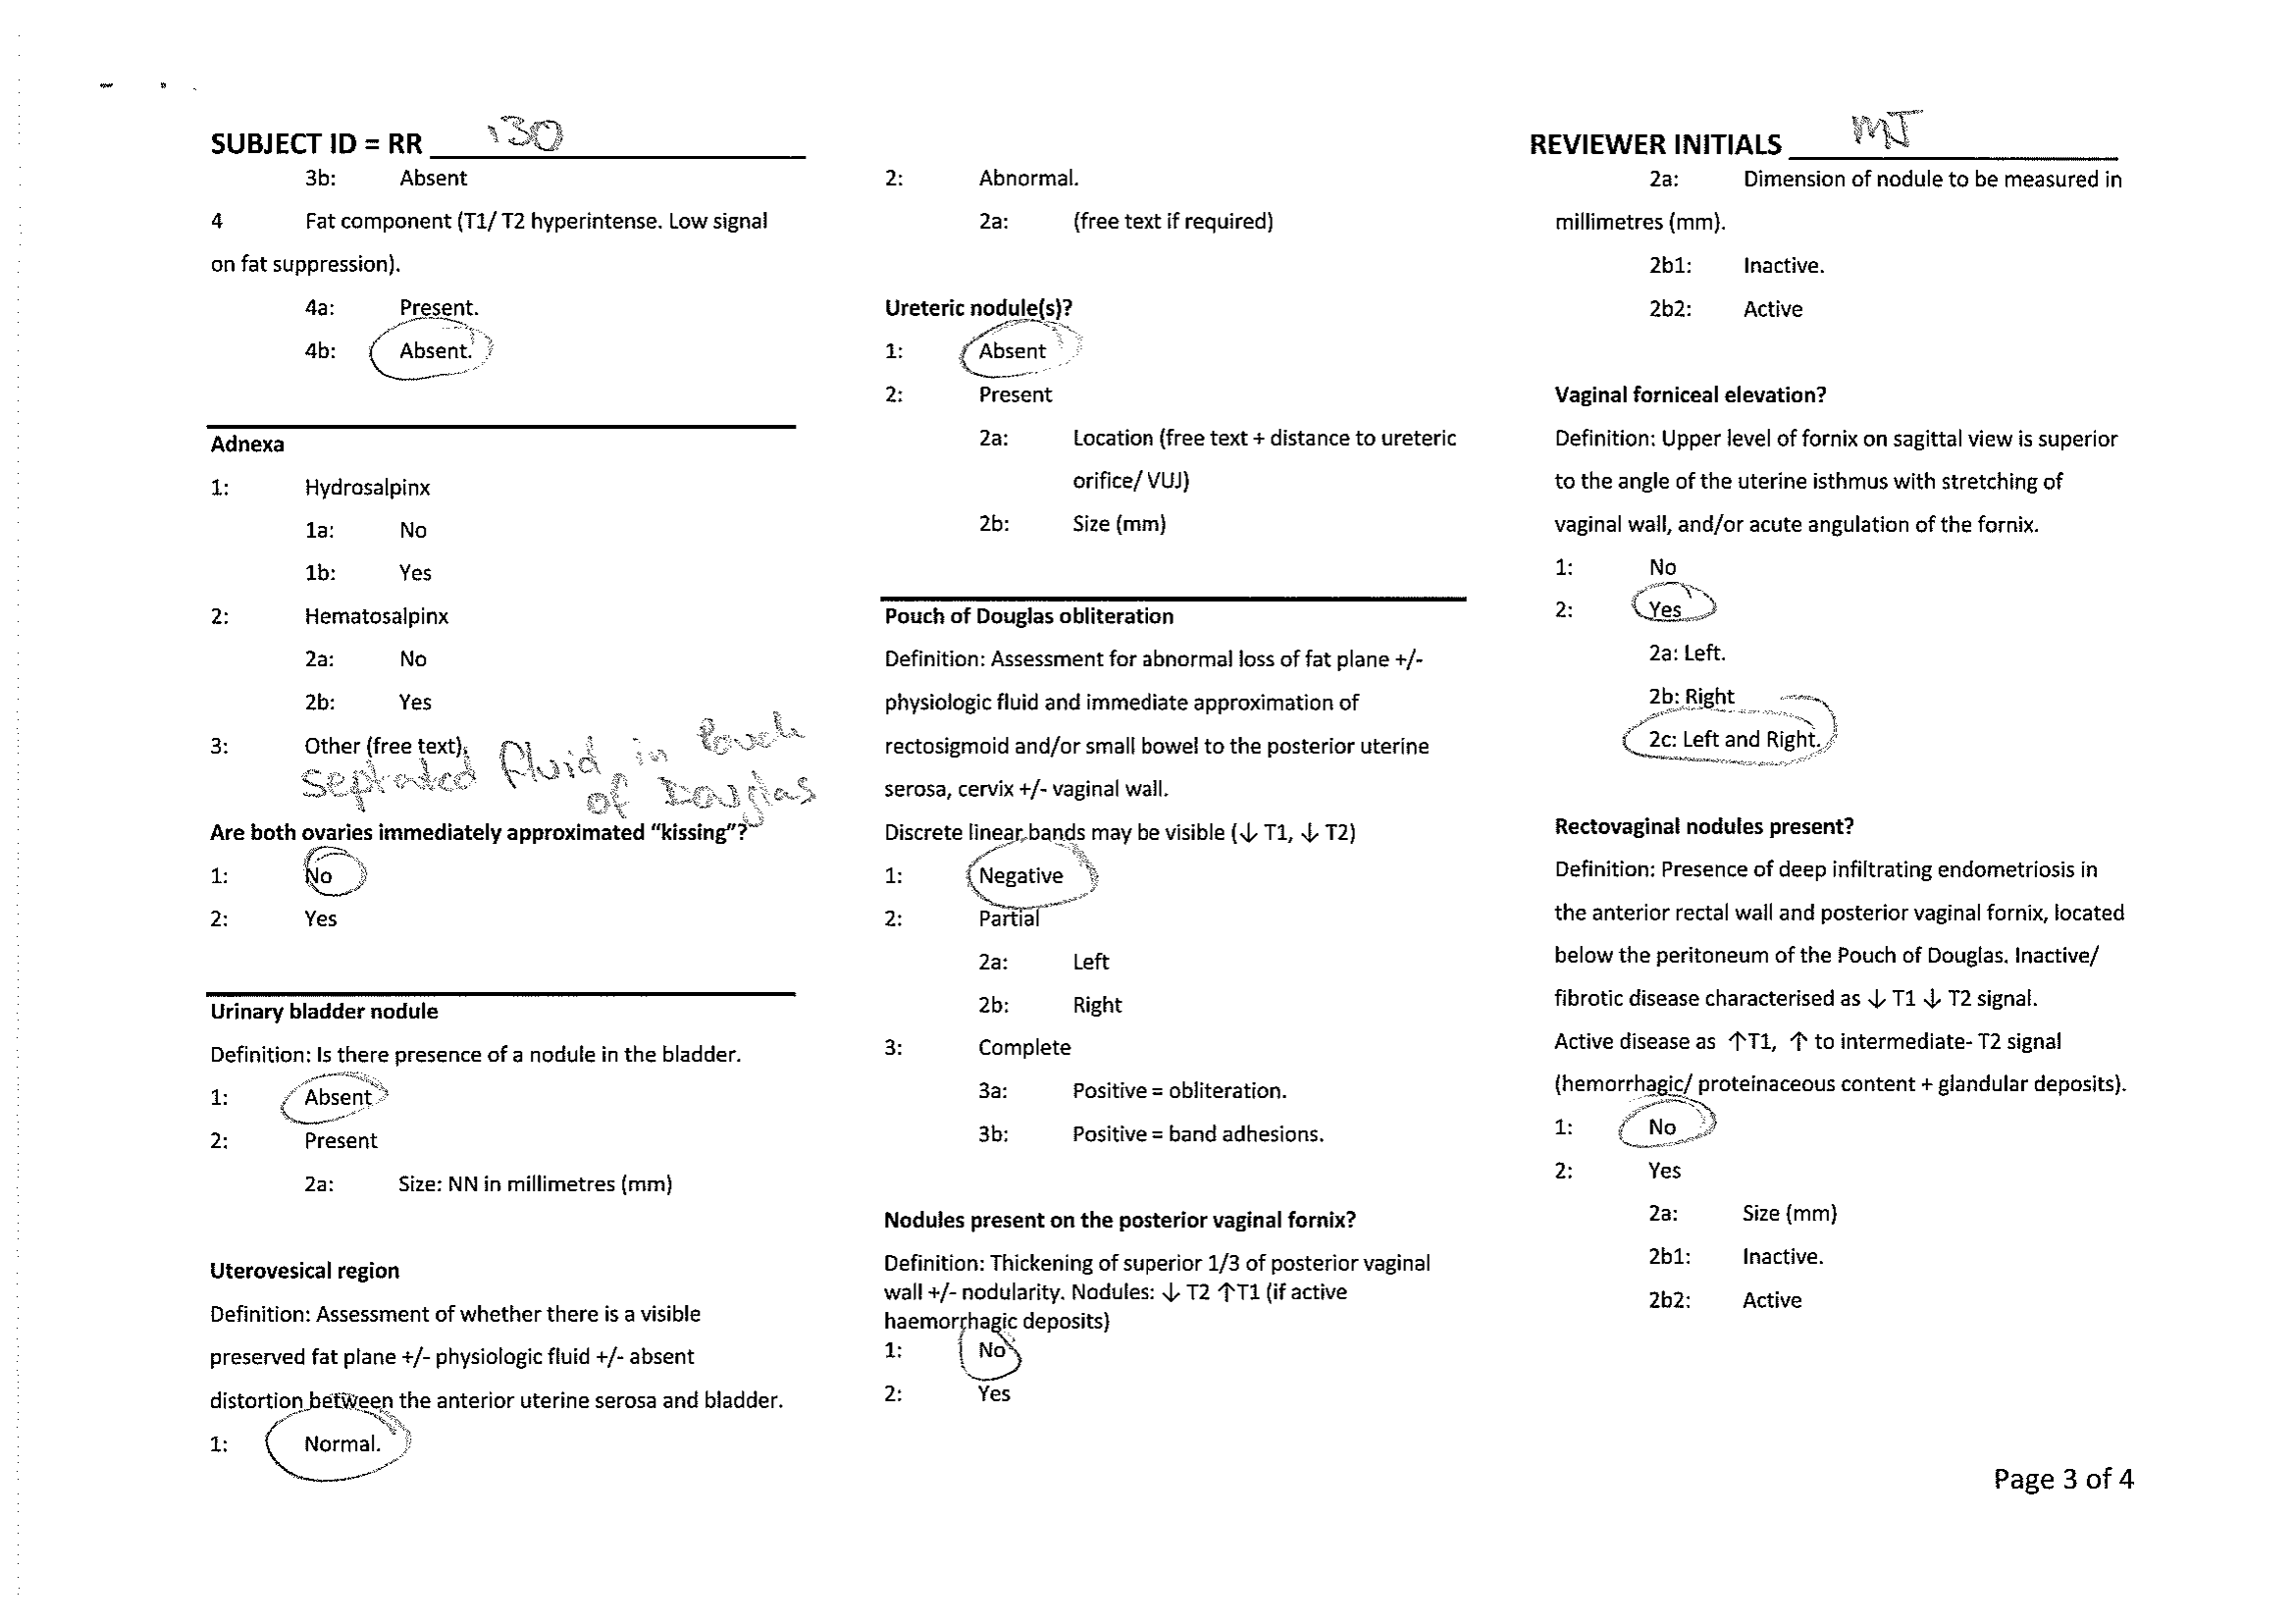 SUBJECT ID = RR 130
3b: Absent
4 Fat component (T1/ T2 hyperintense. Low signal
on fat suppression).
4a: Present.
4b: Absent.
Adnexa
1: Hydrosalpinx
1a: No
1b: Yes
2: Hematosalpinx
2a: No
2b: Yes
3: Other (free text).
septated fluid in Pouch
of Douglas
Are both ovaries immediately approximated “kissing”?
1: No
2: Yes
Urinary bladder nodule
Definition: Is there presence of a nodule in the bladder.
1: Absent
2: Present
2a: Size: NN in millimetres (mm)
Uterovesical region
Definition: Assessment of whether there is a visible
preserved fat plane +/- physiologic fluid +/- absent
distortion between the anterior uterine serosa and bladder.
1: Normal.
2: Abnormal.
2a: (free text if required)
Ureteric nodule(s)?
1: Absent
2: Present
2a: Location (free text + distance to ureteric
orifice/ VUJ)
2b: Size (mm)
Pouch of Douglas obliteration
Definition: Assessment for abnormal loss of fat plane +/-
physiologic fluid and immediate approximation of
rectosigmoid and/or small bowel to the posterior uterine
serosa, cervix +/- vaginal wall.
Discrete linear bands may be visible (↓ T1, ↓ T2)
1: Negative
2: Partial
2a: Left
2b: Right
3: Complete
3a: Positive = obliteration.
3b: Positive = band adhesions.
Nodules present on the posterior vaginal fornix?
Definition: Thickening of superior 1/3 of posterior vaginal
wall +/- nodularity. Nodules: ↓ T2 ↑T1 (if active
haemorrhagic deposits)
1: No
2: Yes
REVIEWER INITIALS MJ
2a: Dimension of nodule to be measured in
millimetres (mm).
2b1: Inactive.
2b2: Active
Vaginal forniceal elevation?
Definition: Upper level of fornix on sagittal view is superior
to the angle of the uterine isthmus with stretching of
vaginal wall, and/or acute angulation of the fornix.
1: No
2: Yes
2a: Left.
2b: Right
2c: Left and Right.
Rectovaginal nodules present?
Definition: Presence of deep infiltrating endometriosis in
the anterior rectal wall and posterior vaginal fornix, located
below the peritoneum of the Pouch of Douglas. Inactive/
fibrotic disease characterised as ↓ T1 ↓ T2 signal.
Active disease as ↑T1, ↑ to intermediate- T2 signal
(hemorrhagic/ proteinaceous content + glandular deposits).
1: No
2: Yes
2a: Size (mm)
2b1: Inactive.
2b2: Active
Page 3 of 4